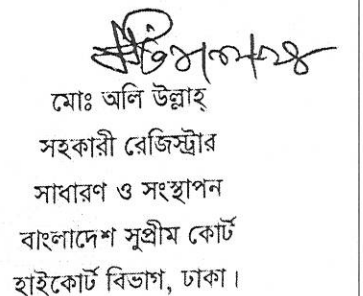 মোঃ অলি উল্লাহ্
সহকারী রেজিস্ট্রার
সাধারণ ও সংস্থাপন
বাংলাদেশ সুপ্রীম কোর্ট
হাইকোর্ট বিভাগ, ঢাকা।